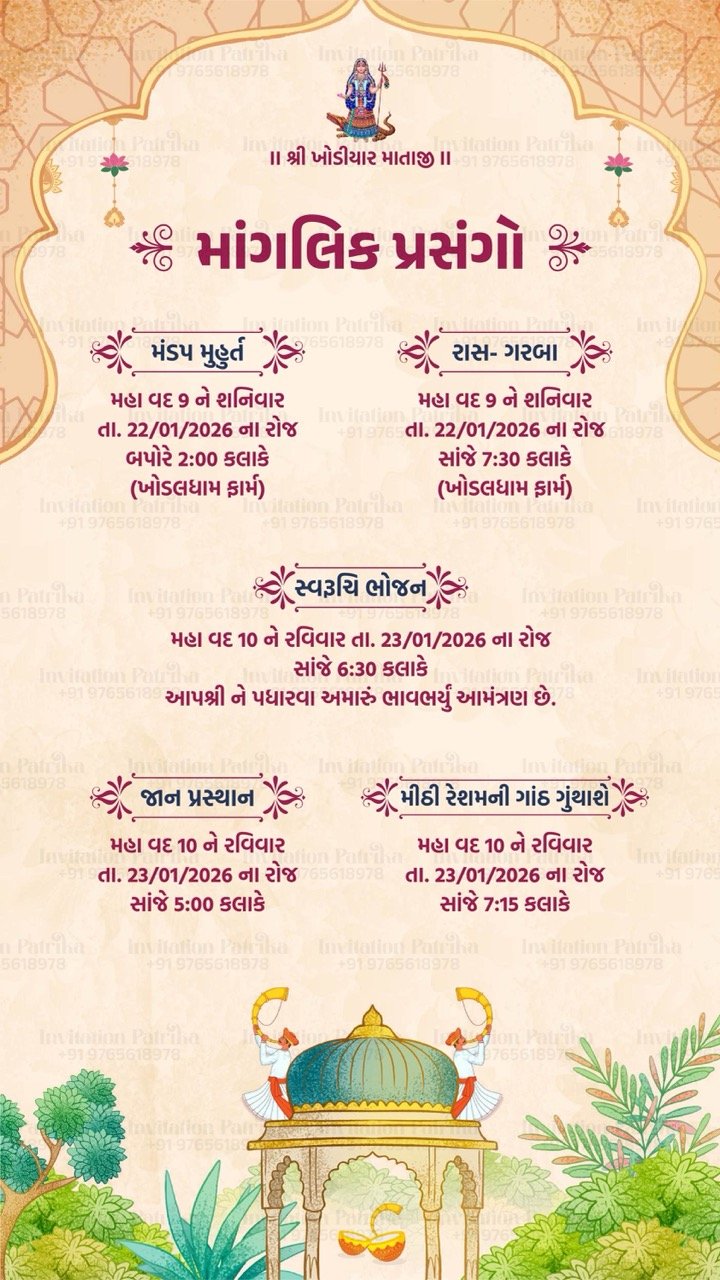 ॥ શ્રી ખોડીયાર માતાજી ॥
માંગલિક પ્રસંગો
મંડપ મુહુર્ત
મહા વદ 9 ને શનિવાર
તા. 22/01/2026 ના રોજ
બપોરે 2:00 કલાકે
(ખોડલધામ ફાર્મ)
રાસ- ગરબા
મહા વદ 9 ને શનિવાર
તા. 22/01/2026 ના રોજ
સાંજે 7:30 કલાકે
(ખોડલધામ ફાર્મ)
સ્વરૂચિ ભોજન
મહા વદ 10 ને રવિવાર તા. 23/01/2026 ના રોજ
સાંજે 6:30 કલાકે
આપશ્રી ને પધારવા અમારું ભાવભર્યું આમંત્રણ છે.
જાન પ્રસ્થાન
મહા વદ 10 ને રવિવાર
તા. 23/01/2026 ના રોજ
સાંજે 5:00 કલાકે
મીઠી રેશમની ગાંઠ ગુંથાશે
મહા વદ 10 ને રવિવાર
તા. 23/01/2026 ના રોજ
સાંજે 7:15 કલાકે
Invitation Patrika
+91 9765618978